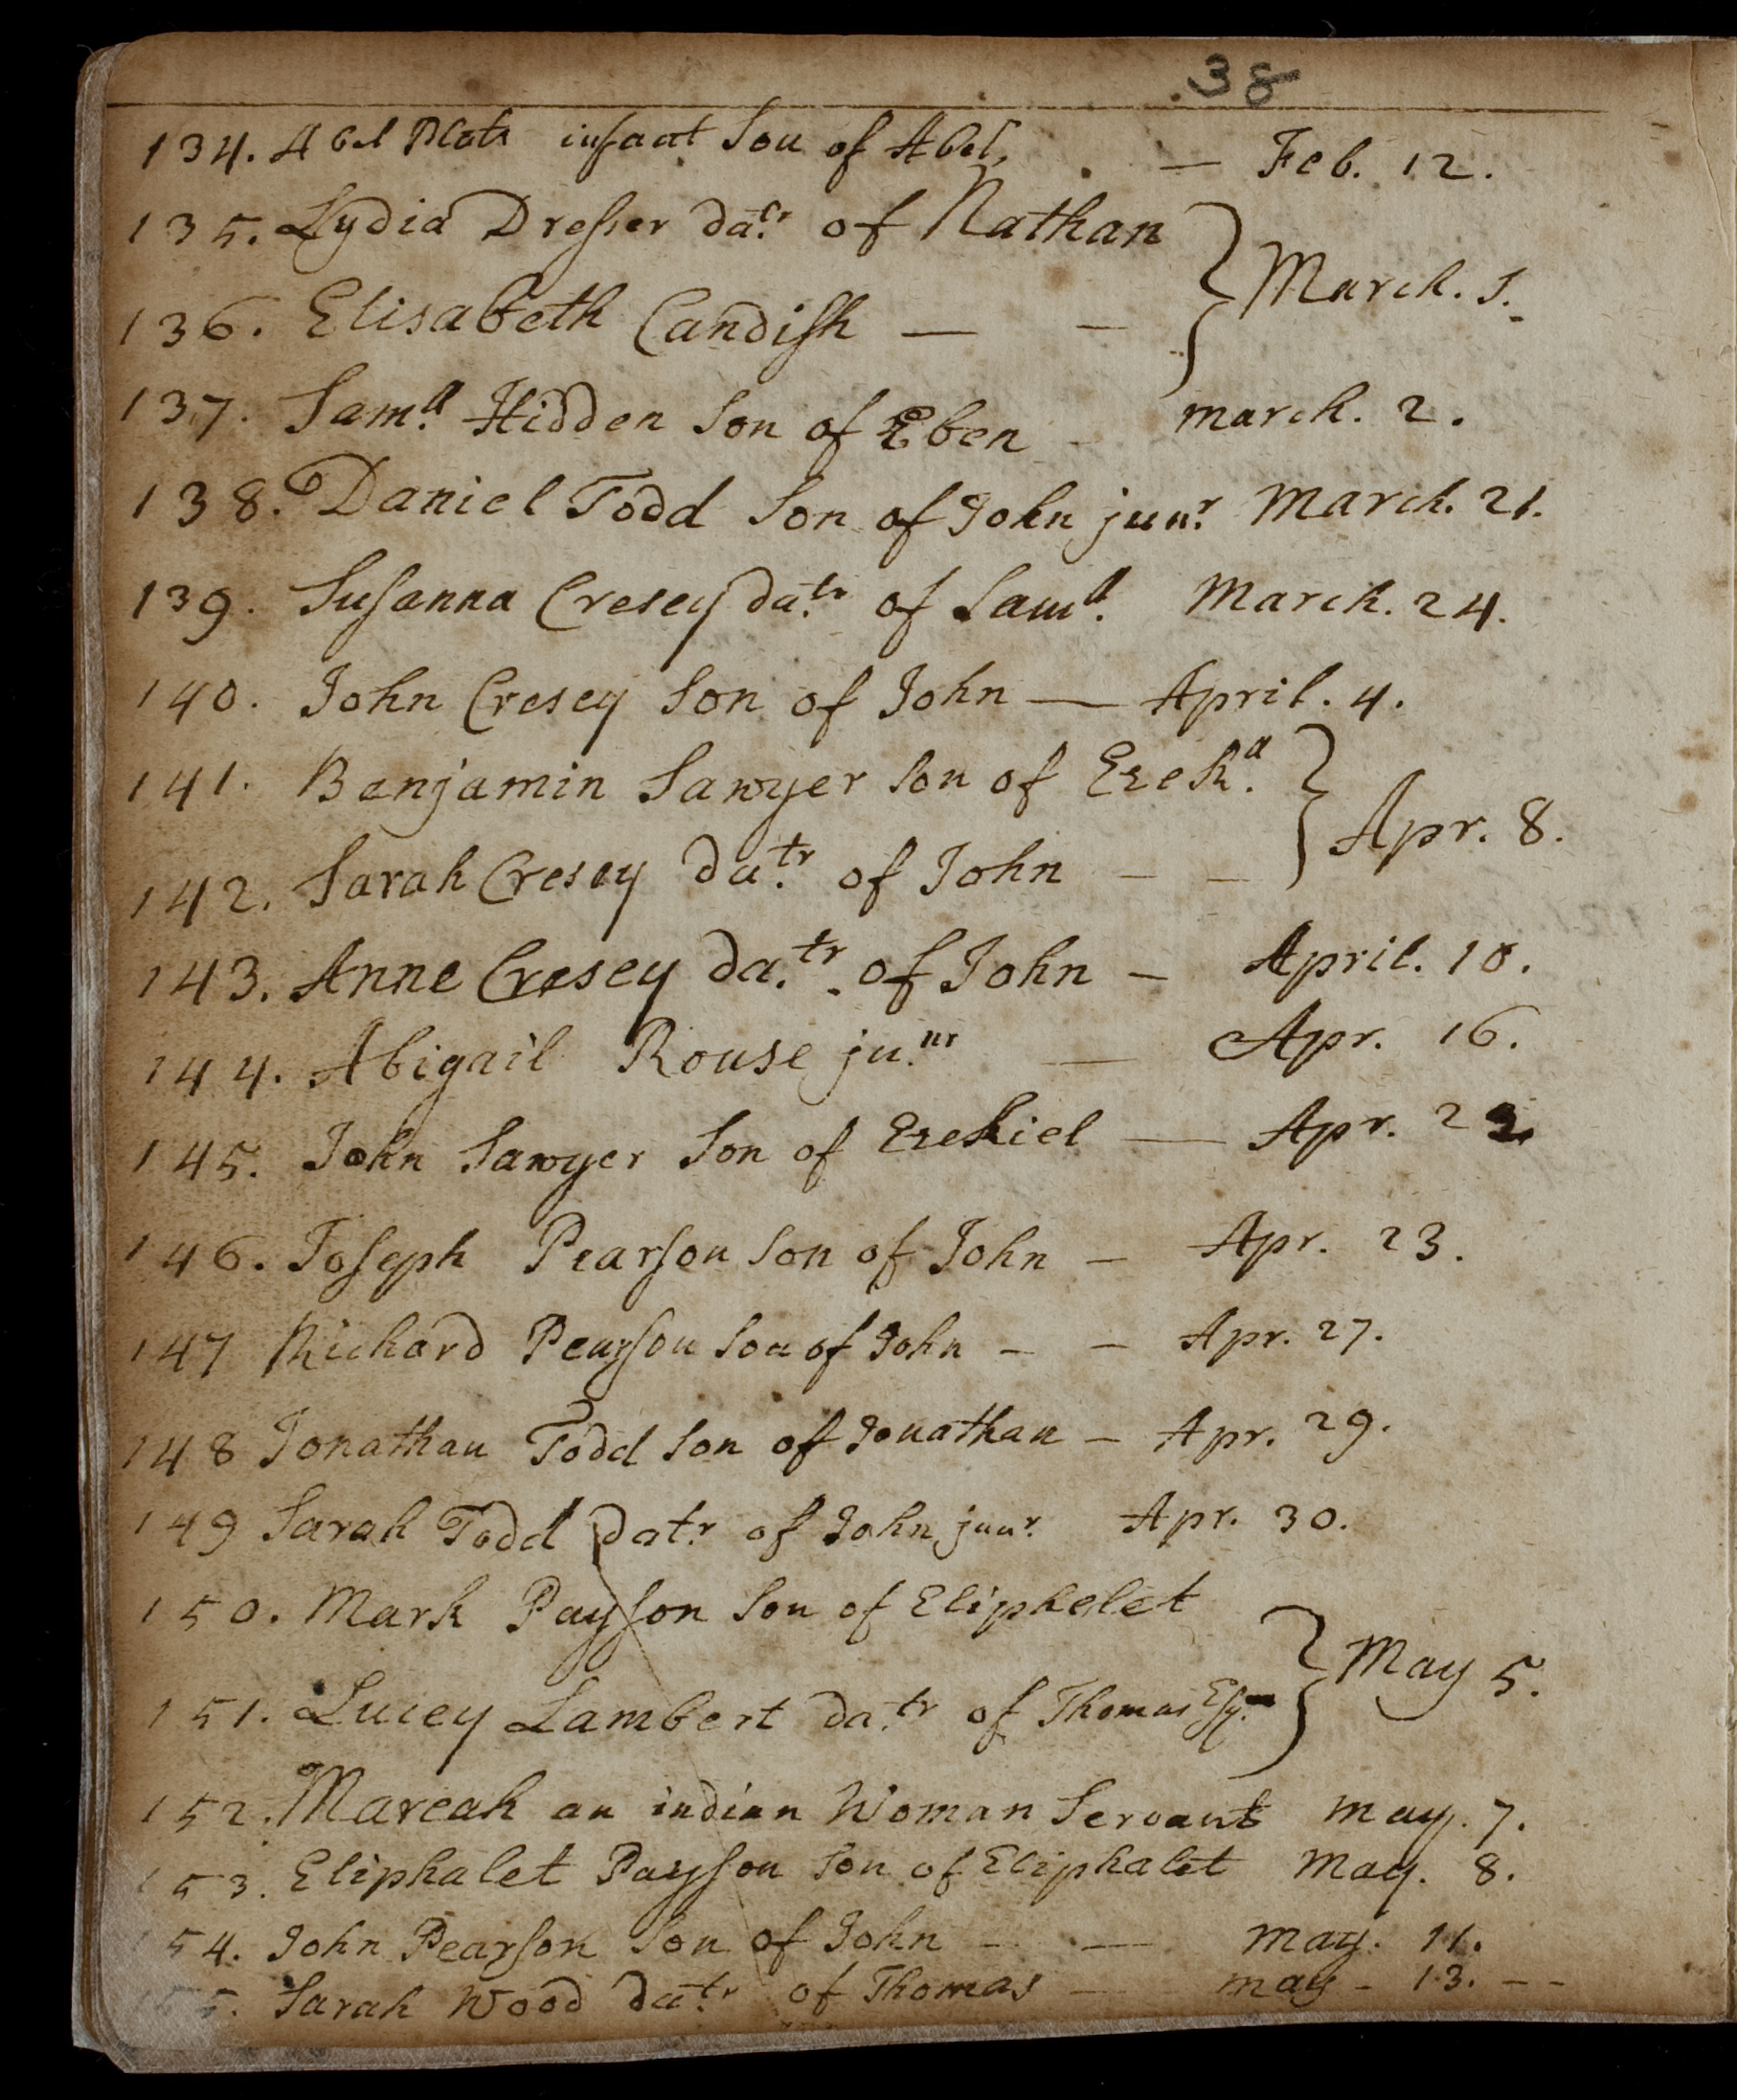 38
134. Abel Plats infant Son of Abel, — Feb. 12.
135. Lydia Dresser datr. of Nathan
March. 1.
136. Elisabeth Candish — —
137. Samll. Hidden Son of Eben - march. 2.
138. Daniel Todd Son of John junr. March. 21.
139. Susanna Cresey datr. of Samll. March. 24.
140. John Cresey Son of John — April. 4.
141. Benjamin Sawyer Son of Ezekll.
Apr. 8.
142. Sarah Cresey datr. of John — —
143. Anne Cresey datr. of John — April. 10.
144. Abigail Rouse junr. — Apr. 16.
145. John Sawyer Son of Ezekiel — Apr. 22.
146. Joseph Pearson Son of John — Apr. 23.
147 Richard Pearson Son of John — — Apr. 27.
148 Jonathan Todd Son of Jonathan — Apr. 29.
149 Sarah Todd datr. of John junr. Apr. 30.
150. Mark Payson Son of Eliphalet
May 5.
151. Lucey Lambert datr. of Thomas Esq.
152. Mareah an indian Woman Servant may. 7.
153. Eliphalet Payson Son of Eliphalet May. 8.
154. John Pearson Son of John — — may. 11.
155. Sarah Wood datr. of Thomas — may - 13. --